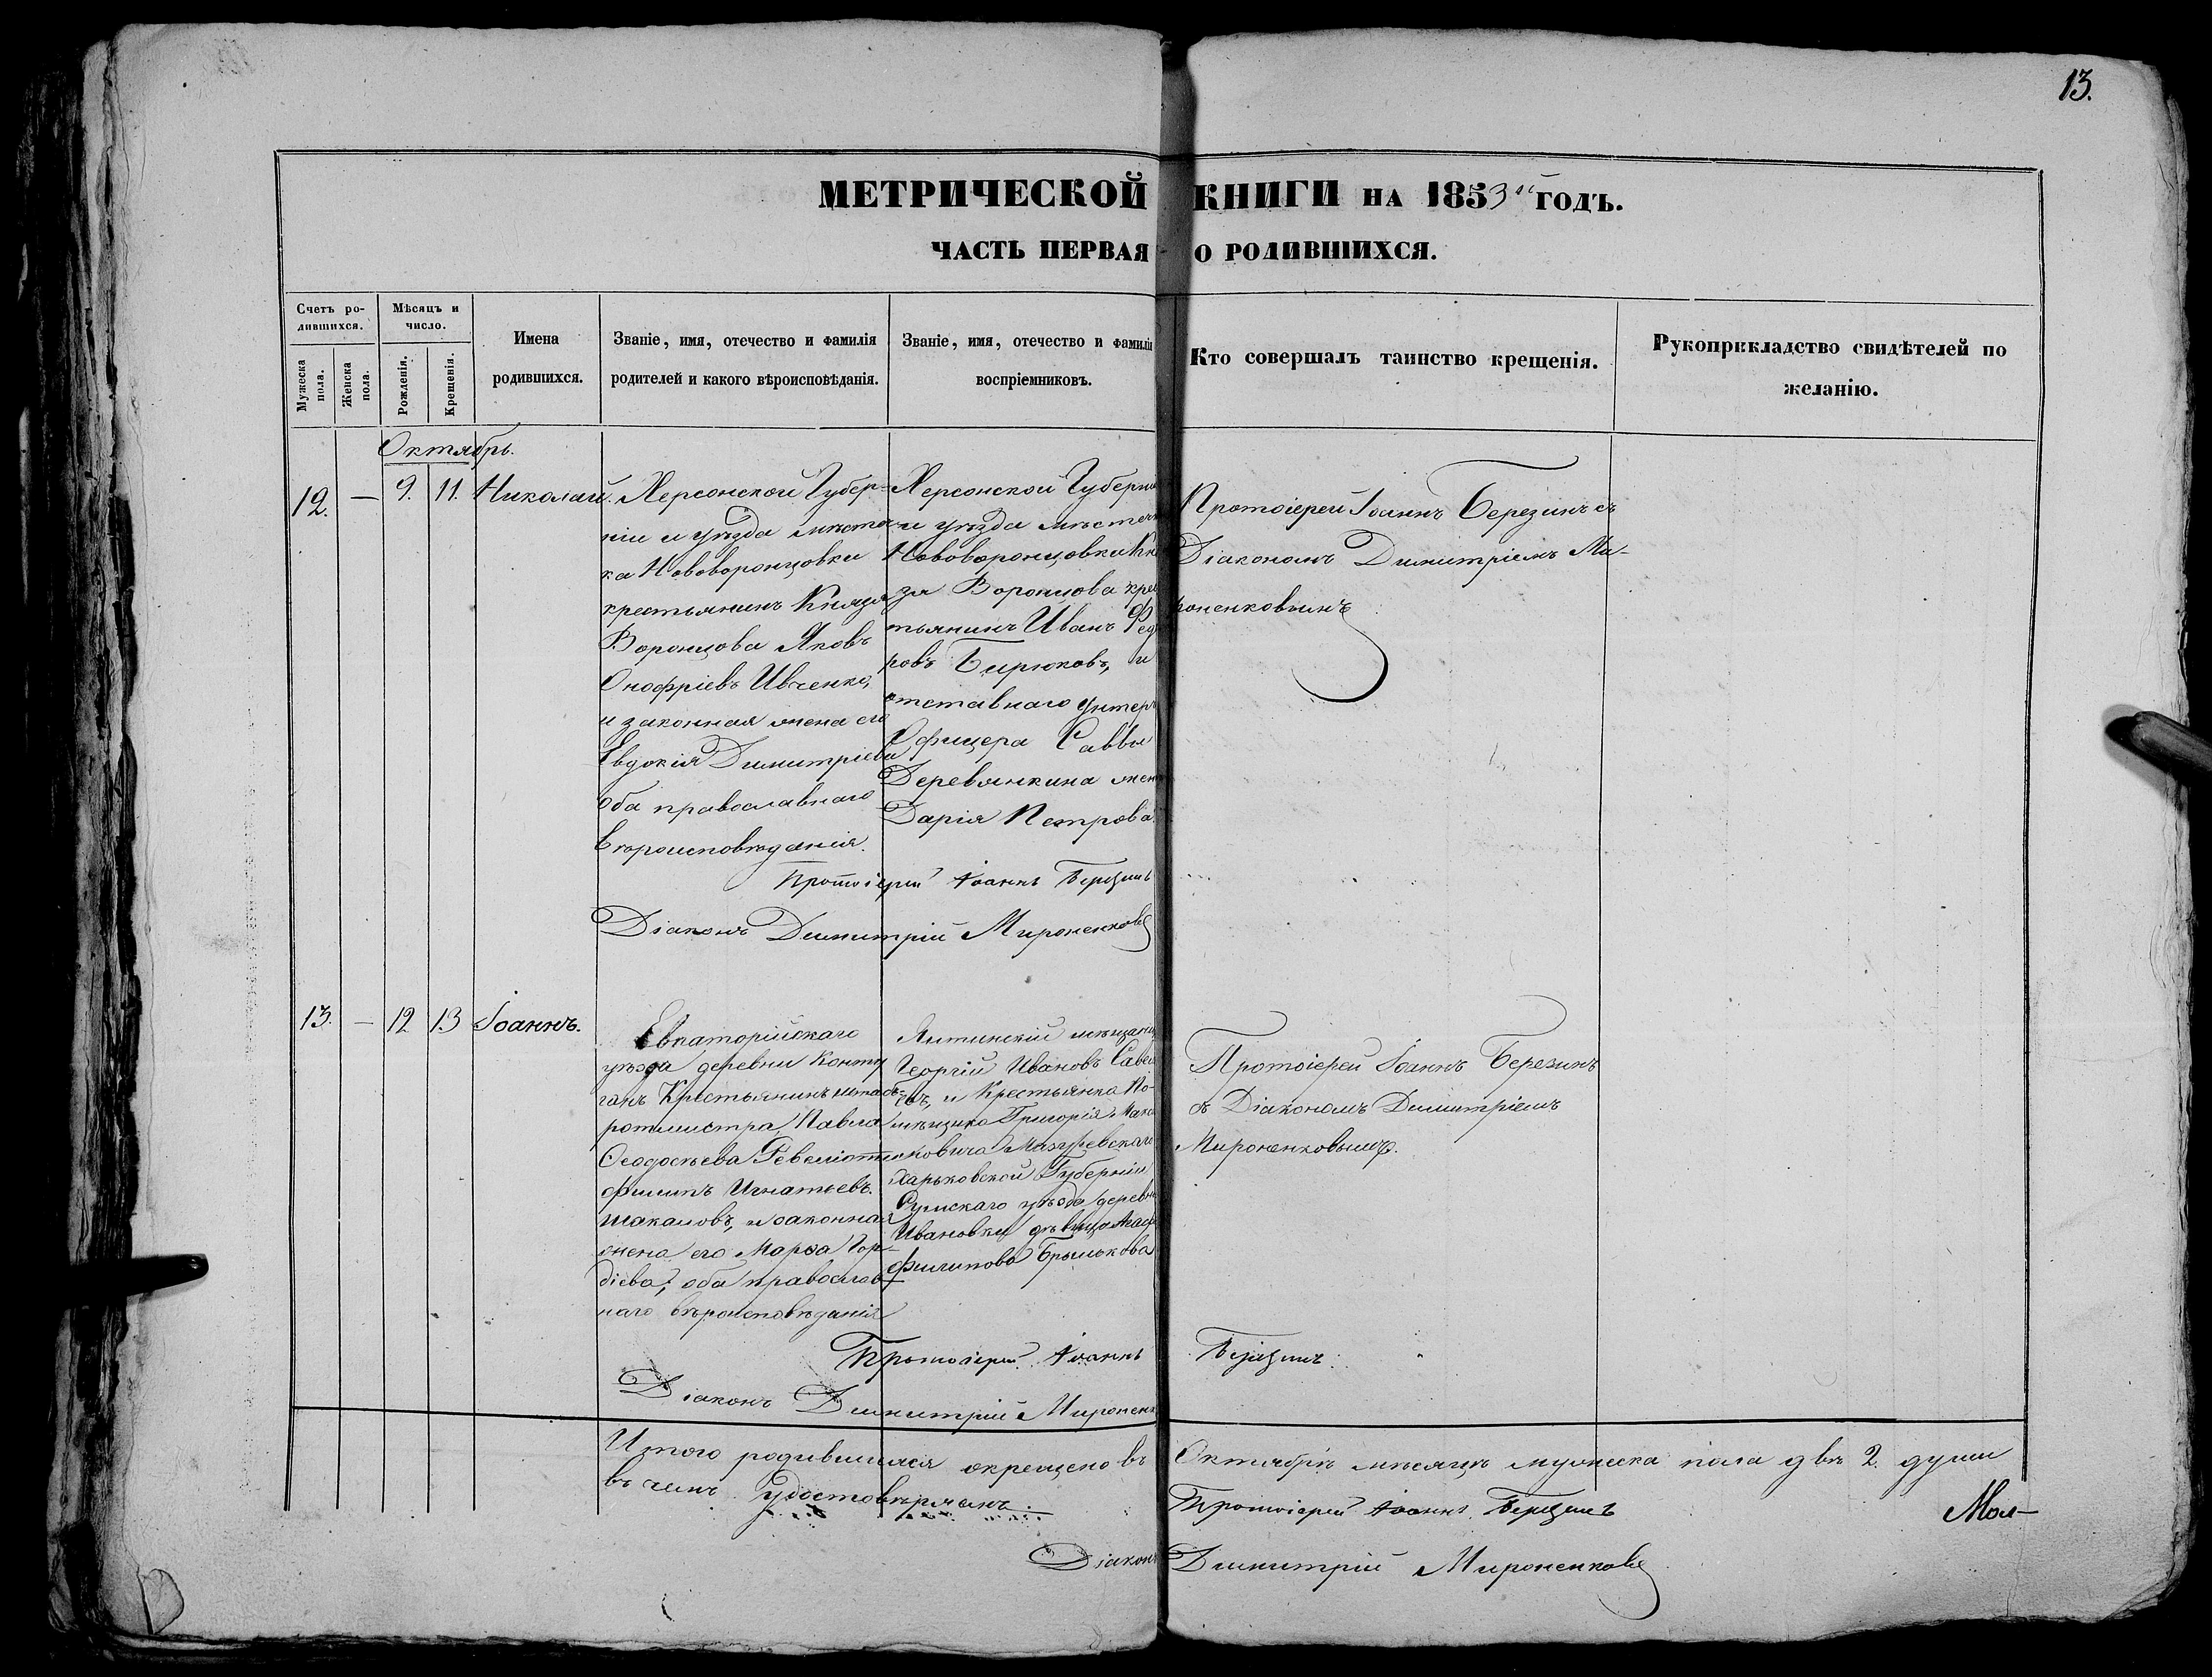 13.
МЕТРИЧЕСКОЙ КНИГИ НА 1853й ГОДЪ.
ЧАСТЬ ПЕРВАЯ О РОДИВШИХСЯ.
Счетъ ро-
дившихся.
Мужеска
пола.
Женска
пола.
Мѣсяцъ и
число.
Рожденія.
Крещенія.
Имена
родившихся.
Званіе, имя, отечество и фамилія
родителей и какого вѣроисповѣданія.
Званіе, имя, отечество и фамилія
воспріемниковъ.
Кто совершалъ таинство крещенія.
Рукоприкладство свидѣтелей по
желанію.
Октябрь.
12. — 9. 11. Николай.
Херсонской Губер-
ніи и уѣзда мѣстеч
ка Нововоронцовки
крестьянинъ Князя
Воронцова Яковъ
Онофріевъ Ивченко,
и законная жена его
Евдокія Димитріева
оба православнаго
вѣроисповѣданія.
Херсонской Губерні
и уѣзда мѣстеч
Нововоронцовки Кня
зя Воронцова крес
тьянинъ Иванъ Федо
ровъ Бирюковъ, и
отставнаго унтеръ
Офицера Саввы
Деревянкина жена
Дарія Петрова.
Протоіерей Іоаннъ Березинъ съ
Діакономъ Димитріемъ Ми-
роненковымъ
Протоіерей Іоаннъ Березинъ
Діаконъ Димитрій Мироненковъ
13. — 12 13 Іоаннъ.
Евпаторійскаго
уѣзда деревни Конту
ганъ Крестьянинъ штабъ-
ротмистра Павла
Ѳеодосѣева Ревеліотти
Филипъ Игнатьевъ
Шакаловъ, и законная
жена его Марѳа Гор-
діева, оба православ
наго вѣроисповѣданія
Ялтинскій мѣщанинъ
Георгій Ивановъ Савел
овъ, и Крестьянка По-
мѣщика Григорія Мака
ковича
Харьковской Губерніи
Сумскаго уѣзда деревни
Ивановки дѣвица Агаф
Филипова
Протоіерей Іоаннъ Березинъ
съ Діакономъ Димитріемъ
Мироненковымъ.
Протоіерей Іоаннъ Березинъ
Діаконъ Димитрій Мироненк
Итого родившихся окрещено въ Октябрѣ мѣсяцѣ мужеска пола двѣ 2. души
въ чемъ удостовѣряемъ.
Протоіерей Іоаннъ Березинъ
Мол-
Діаконъ Димитрій Мироненковъ